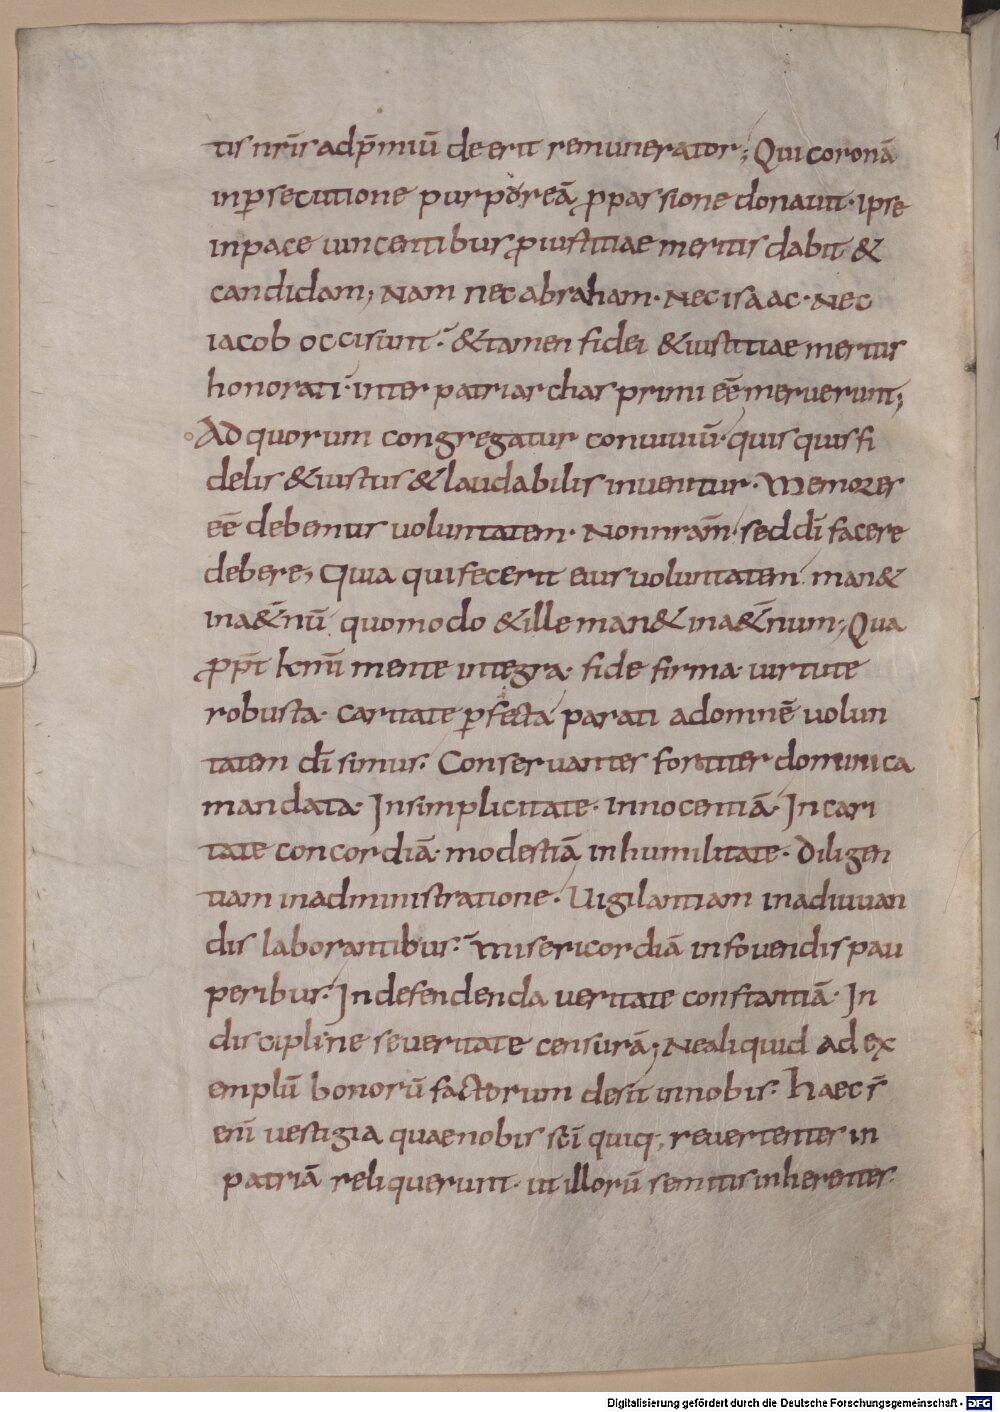 tis nr̄is ad p̄miū deerit remunerator; Qui coronā
in ꝑsecutione purpoream ꝓ passione donauit· ipse
in pace uincentibus ꝓ iustitiae meritis dabit &
candidam; Nam nec abraham· Nec isaac· Nec
iacob occisi sunt·̄ & tamen fidei & iustitiae meritis
honorati· inter patriarchas primi eē meruerunt;
Ad quorum congregatur conuiuiū· quisquis fi
delis & iustus & laudabilis inuenitur· Memores
eē debemus uoluntatem· Non nr̄am· sed dī facere
debere; Quia qui fecerit eius uoluntatem man&
in a&̄nū quomodo & ille man& in a&̄num; Qua
ꝓpt̄ k̄mi mente integra· fide firma· uirtute
robusta· caritate ꝑfecta parati ad omnē uolun
tatem dī simus· Conseruantes fortiter dominica
mandata· In simplicitate· innocentiā· In cari
tate concordiā· modestiā in humilitate· Diligen
tiam in administratione· Uigilantiam in adiuuan
dis laborantibus·̄ Misericordiā in fouendis pau
peribus· In defendenda ueritate constantiā· In
discipline seueritate censurā; Ne aliquid ad ex
emplū bonorū factorum desit in nobis· Haec s̄
eni̅ uestigia quae nobis sc̄i quiq; reuertentes in
patriā reliquerunt· ut illorū semitis inherentes·
Digitalisierung gefördert durch die Deutsche Forschungsgemeinschaft - DFG